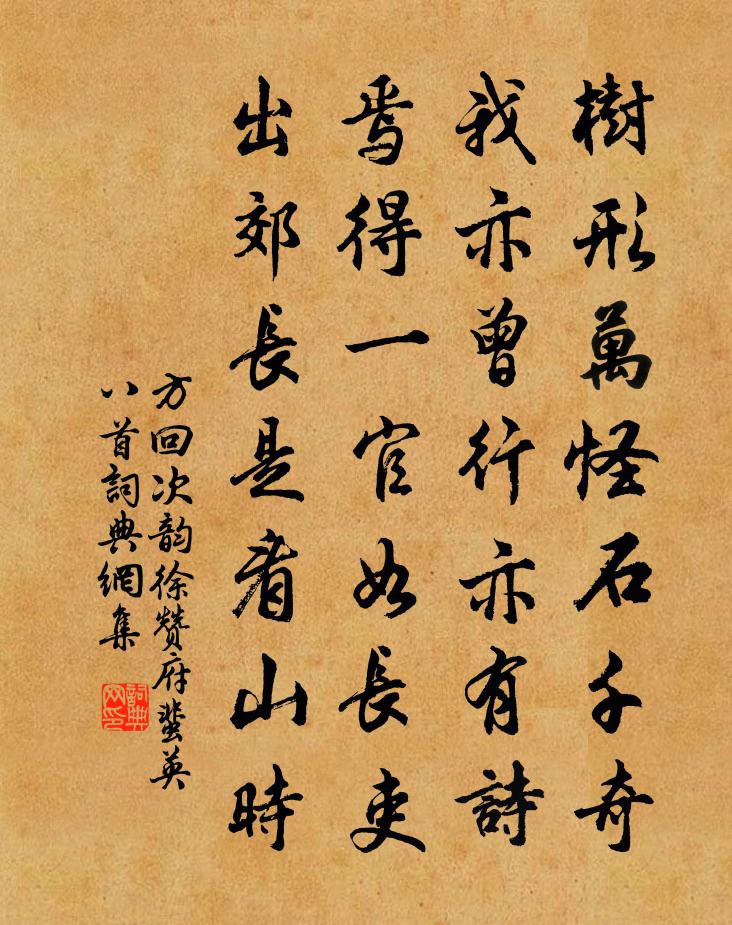 樹形萬怪石千奇
我亦曾行亦有詩
焉得一官如長吏
出郊長是看山時
方回次韵徐贊府蜚英
八首詞典網集
詞典網印